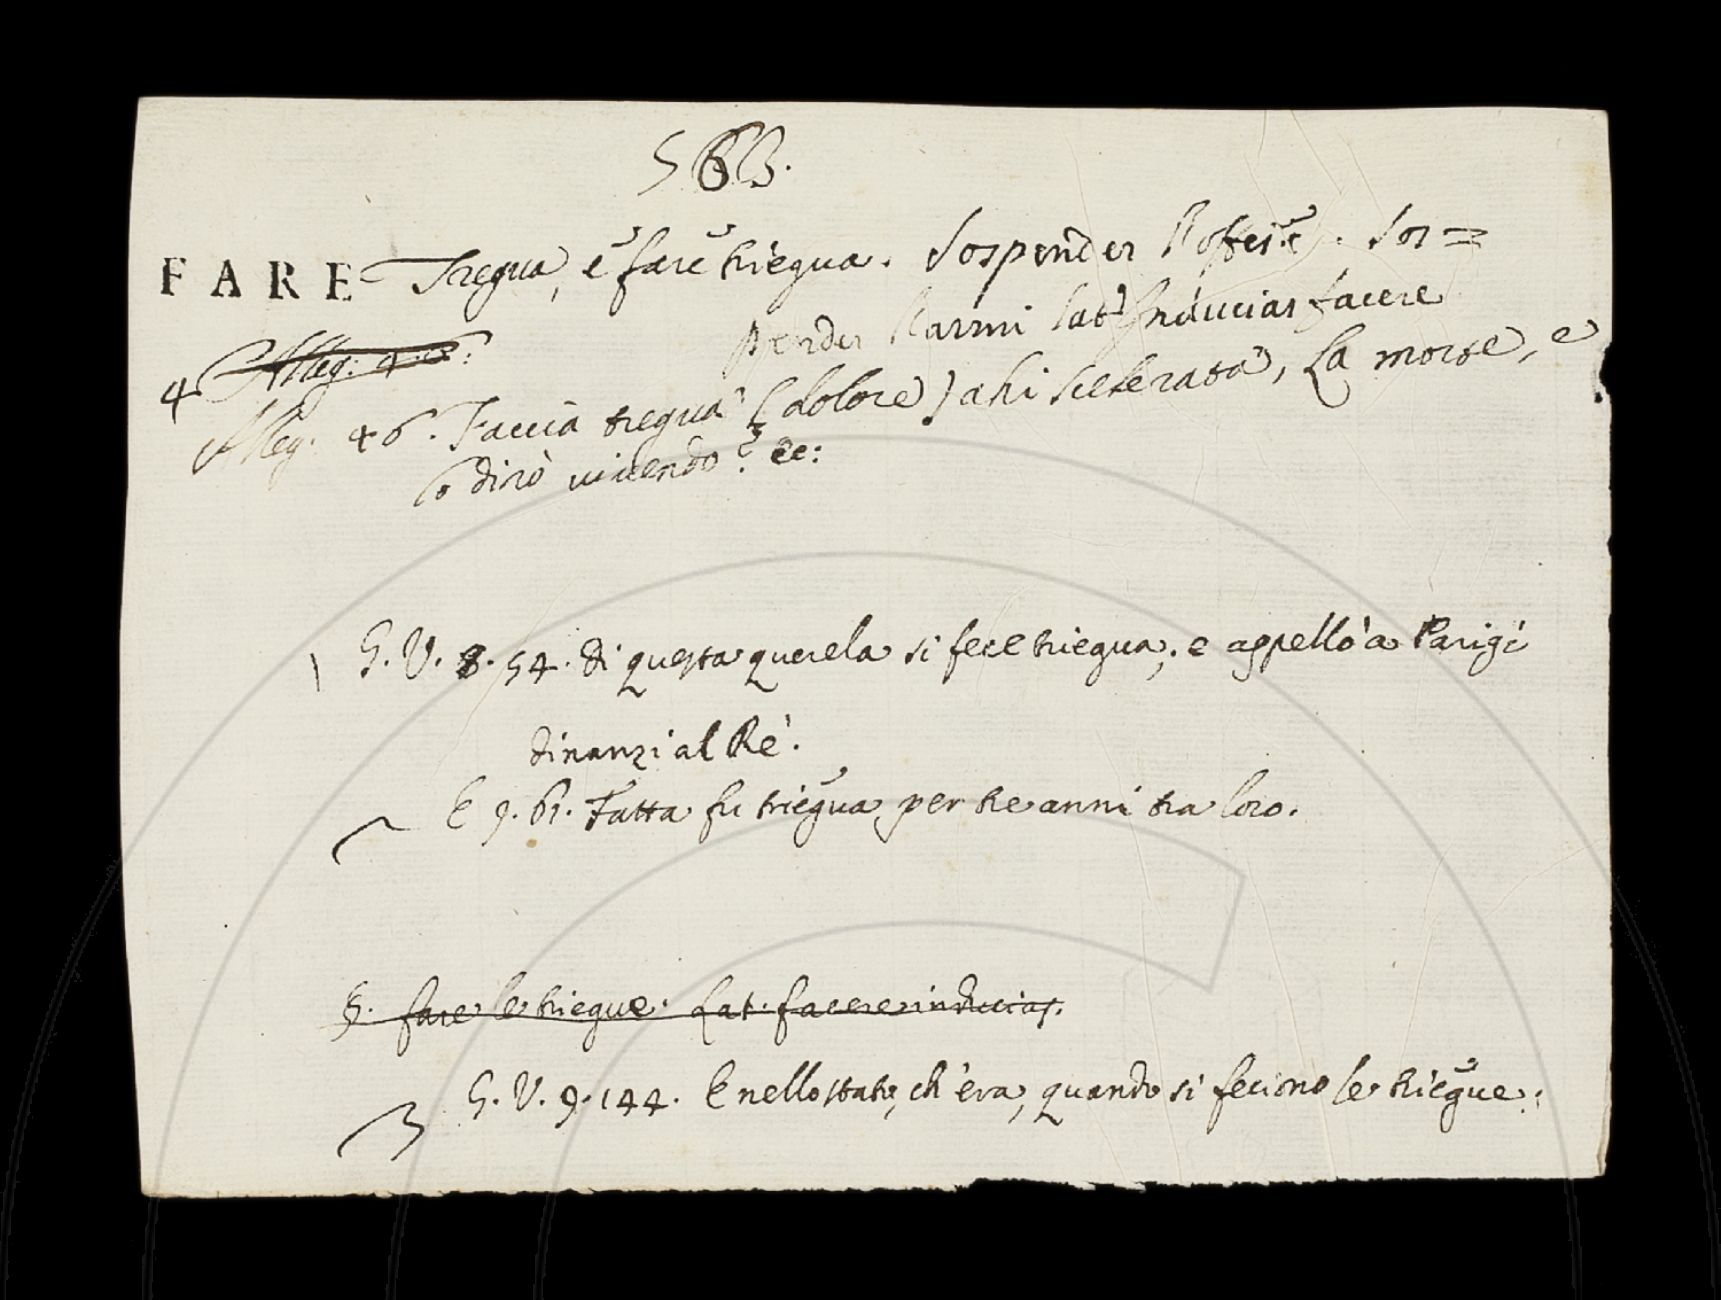 563.
FARE Tregua, e fare triegua. Sospender l'offese. Sos=
pender l'armi lat. Inducias facere
4 Alleg. 46.
Alleg. 46. Faccia tregua (dolore) ahi scelerata, La morte, e
o dirò vivendo? ec:
1 G. V. 8. 54. di questa querela si fece triegua; e appellò a Parigi
dinanzi al Re.
E 9. 61. Fatta fu triegua per tre anni tra loro.
§. fare le triegue. Lat. facere inducias.
3 G. V. 9. 144. E nello stato, ch'era, quando si feciono le triegue.